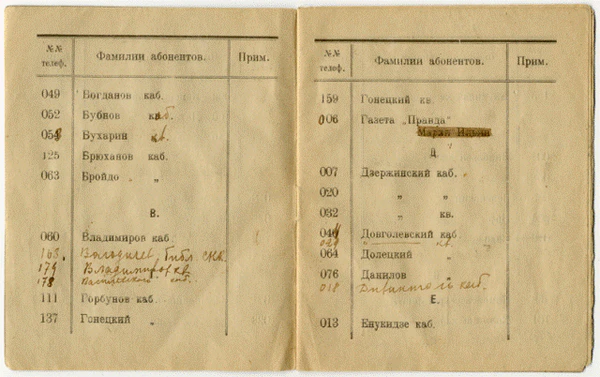 №№ телеф. Фамилии абонентов. Прим.
049 Богданов каб.
052 Бубнов каб.
054 Бухарин кв.
125 Брюханов каб.
063 Бройдо „
В.
060 Владимиров каб
168. Володичев, библ. СНК.
179 Владимиров кв.
178 каб.
111 Горбунов каб.
137 Гонецкий „
№№ телеф. Фамилии абонентов. Прим.
159 Гонецкий кв
006 Газета „Правда"
Мария Ильин
Д.
007 Дзержинский каб.
020 „ „
032 „ кв.
Донголевский каб
029 „ кв.
064 Долецкий „
076 Данилов „
018 каб.
Е.
013 Енукидзе каб.